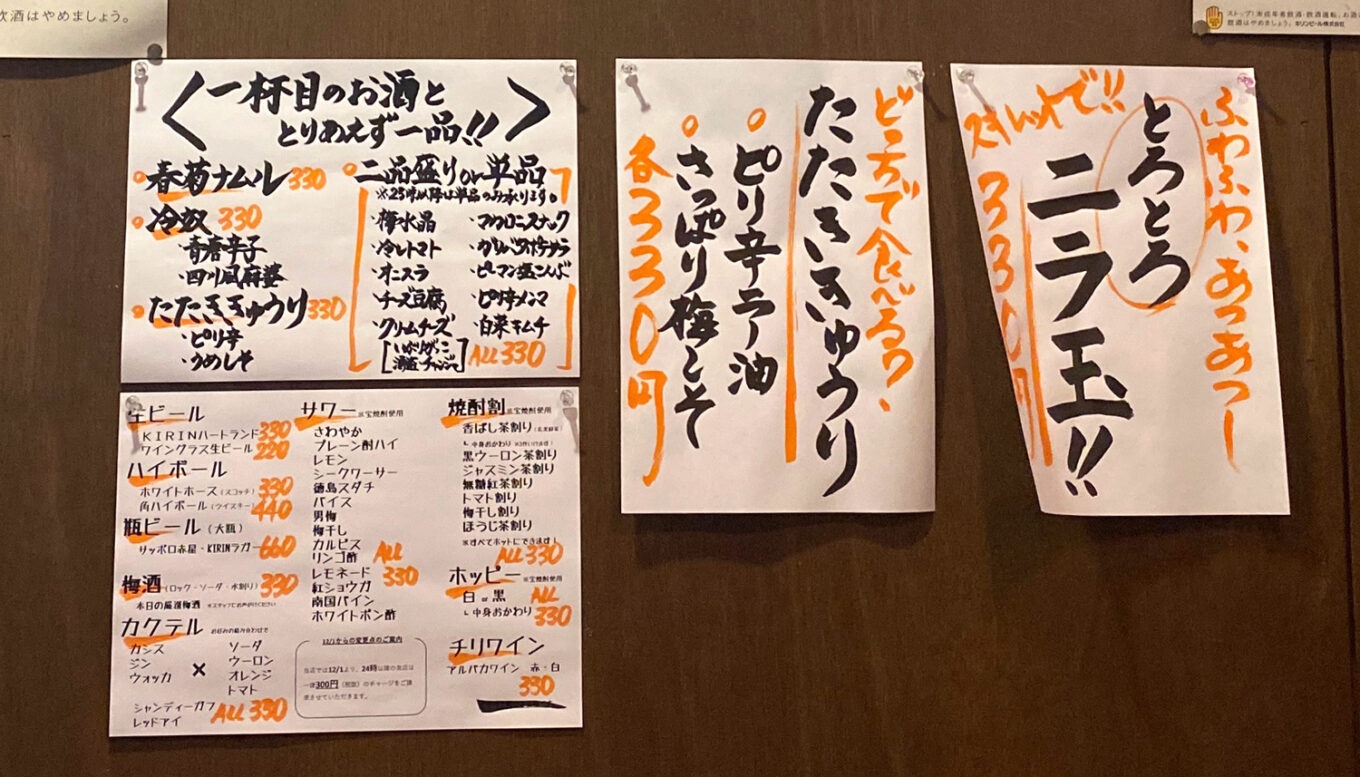 飲酒はやめましょう。
ストップ!未成年者飲酒・飲酒運転。お酒
飲酒はやめましょう。キリンビール株式会社
一杯目のお酒と
とりあえず一品!!
春菊ナムル 330
冷奴 330
・青唐辛子
・四川風麻婆
たたききゅうり 330
・ピリ辛
・うめしそ
二品盛りor単品
※23時以降は単品のみ承ります。
・梅水晶
・冷しトマト
・オニスラ
・チーズ豆腐
・クリームチーズ
いぶりがっこ
酒盗・チャンジャ
・マカロニスナック
・ガリバタポテサラ
・ピーマン塩こんぶ
・ピリ辛メンマ
・白菜キムチ
ALL 330
生ビール
KIRINハートランド 330
ワイングラス生ビール 220
ハイボール
ホワイトホース(スコッチ) 330
角ハイボール(ウイスキー) 440
瓶ビール(大瓶)
サッポロ赤星・KIRINラガー 660
梅酒(ロック・ソーダ・水割り) 330
本日の厳選梅酒 ※スタッフにお声がけください
カクテル お好みの組み合わせで
カシス
ジン
ウォッカ
×
ソーダ
ウーロン
オレンジ
トマト
シャンディーガフ
レッドアイ
ALL 330
サワー ※宝焼酎使用
さわやか
プレーン酎ハイ
レモン
シークワーサー
徳島スダチ
バイス
男梅
梅干し
カルピス
リンゴ酢
レモネード
紅ショウガ
南国パイン
ホワイトポン酢
ALL
330
12/1からの変更点のご案内
当店では12/1より、24時以降の支店は
一律300円(税別)のチャージをご請
求させていただきます。
焼酎割 ※宝焼酎使用
香ばし茶割り(玄米緑茶)
└ 中身おかわり
黒ウーロン茶割り
ジャスミン茶割り
無糖紅茶割り
トマト割り
梅干し割り
ほうじ茶割り
※すべてホットにできます!
ALL 330
ホッピー ※宝焼酎使用
白 or 黒
└ 中身おかわり
ALL
330
チリワイン
アルパカワイン 赤・白
330
どっちで食べる?
たたききゅうり
ピリ辛ラー油
さっぱり梅しそ
各330円
ふわふわ、あつあつー
とろとろ
ニラ玉!!
スキレットで!!
330円